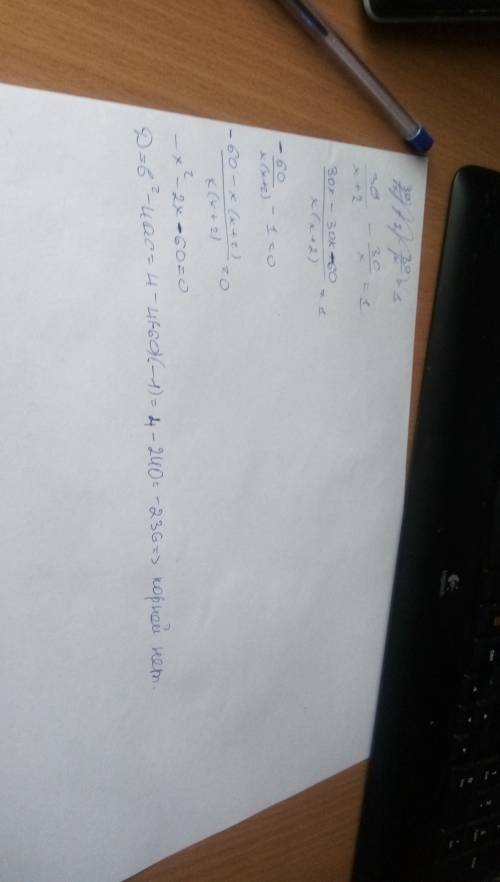 30/(x+2) - 30/x = 1
(30x - 30x - 60)/(x(x+2)) = 1
-60/(x(x+2)) - 1 = 0
(-60 - x(x+2))/(x(x+2)) = 0
-x² - 2x - 60 = 0
D = b² - 4ac = 4 - 4(-60)(-1) = 4 - 240 = -236 => корней нет.